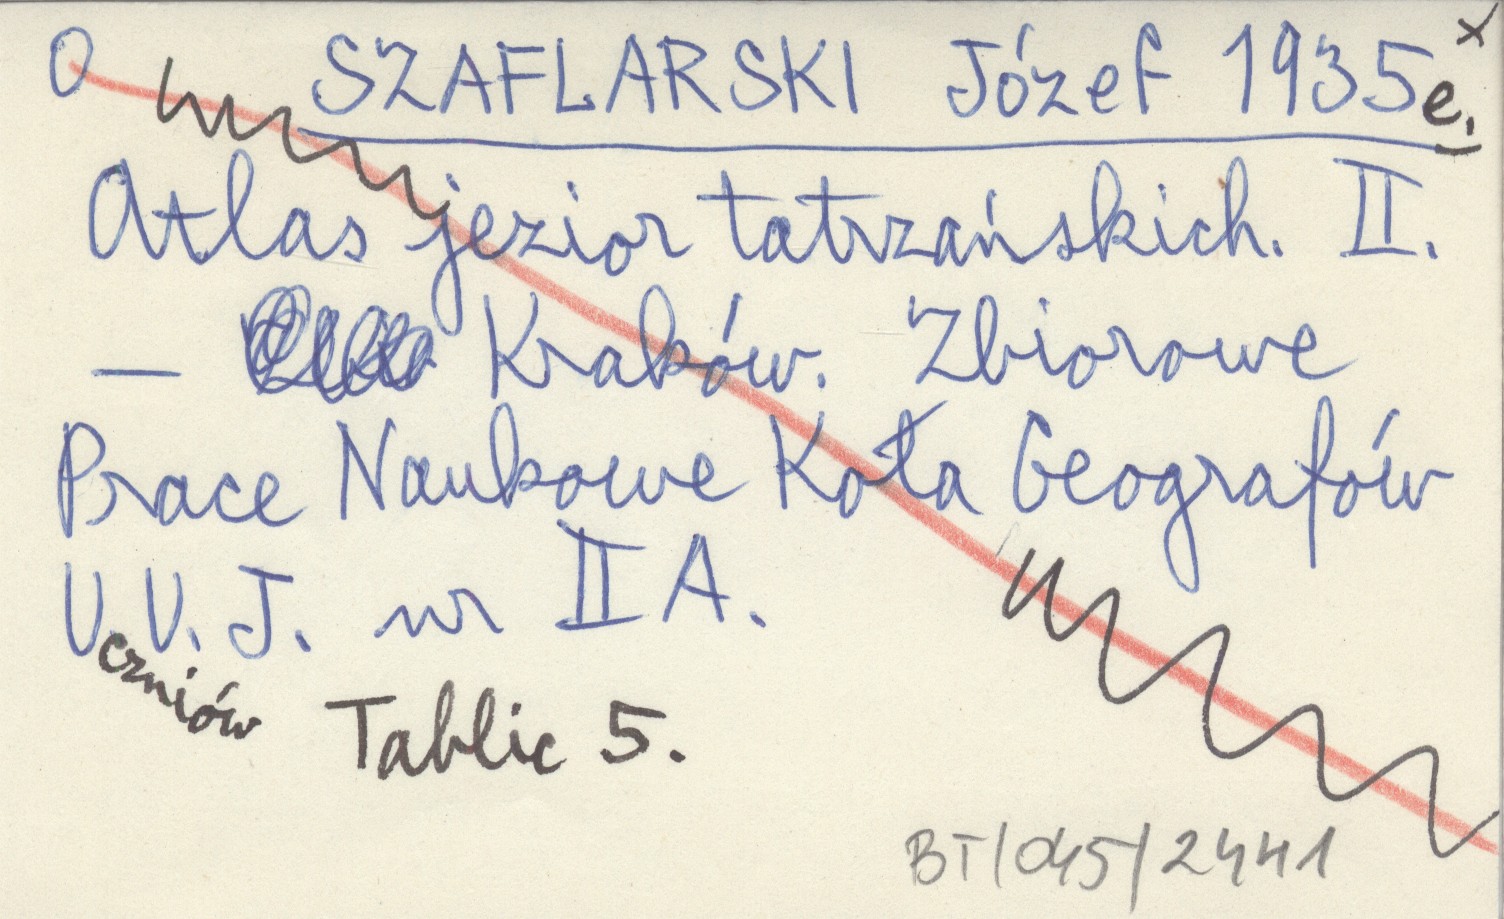 O SZAFLARSKI Józef 1935e. x
Atlas jezior tatrzańskich. II.
— Kraków. Zbiorowe
Prace Naukowe Koła Geografów
Uczniów U. J. nr II A.
Tablic 5.
BT/045/2441